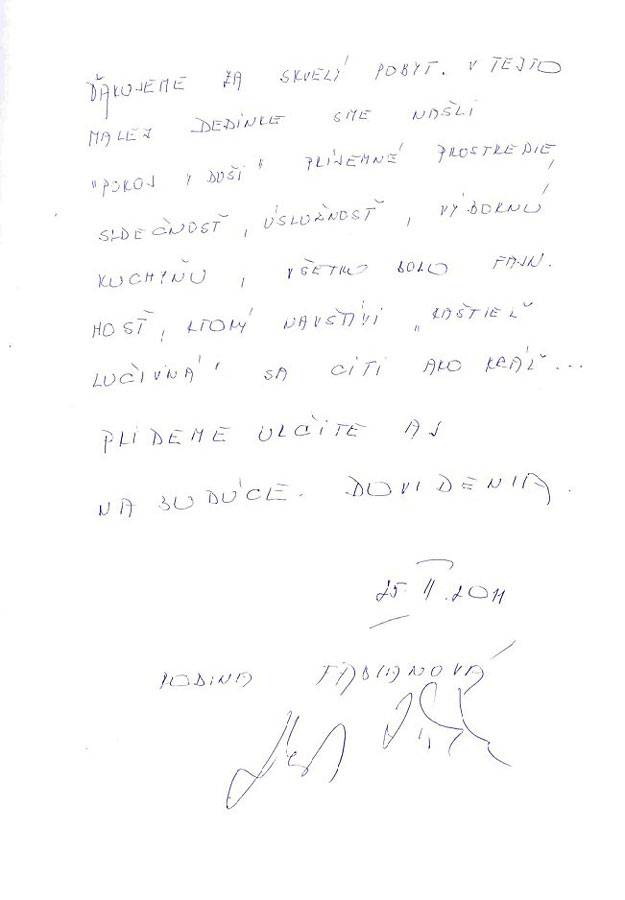 ĎAKUJEME ZA SKVELÝ POBYT. V TEJTO
MALEJ DEDINKE SME NAŠLI
"POKOJ V DUŠI" PRÍJEMNÉ PROSTREDIE,
SRDEČNOSŤ, ÚSLUŽNOSŤ, VÝBORNÚ
KUCHYŇU, VŠETKO BOLO FAJN.
HOSŤ, KTORÝ NAVŠTÍVI „KAŠTIEĽ
LUČIVNÁ" SA CÍTI AKO KRÁĽ...
PRÍDEME URČITE AJ
NA BUDÚCE. DOVIDENIA.
25. II. 2011
RODINA FABIANOVÁ